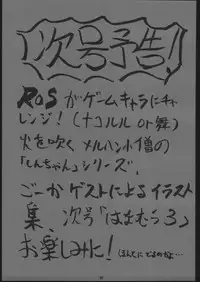 次号予告!
RoSがゲームキャラにチャ
レンジ!(ナコルル or 舞)
火を吹くメルヘン小僧の
「しんちゃん」シリーズ。
ごーかゲストによるイラスト
集、次号「はまむう3」
お楽しみに!(ほんとにでるのかよ…